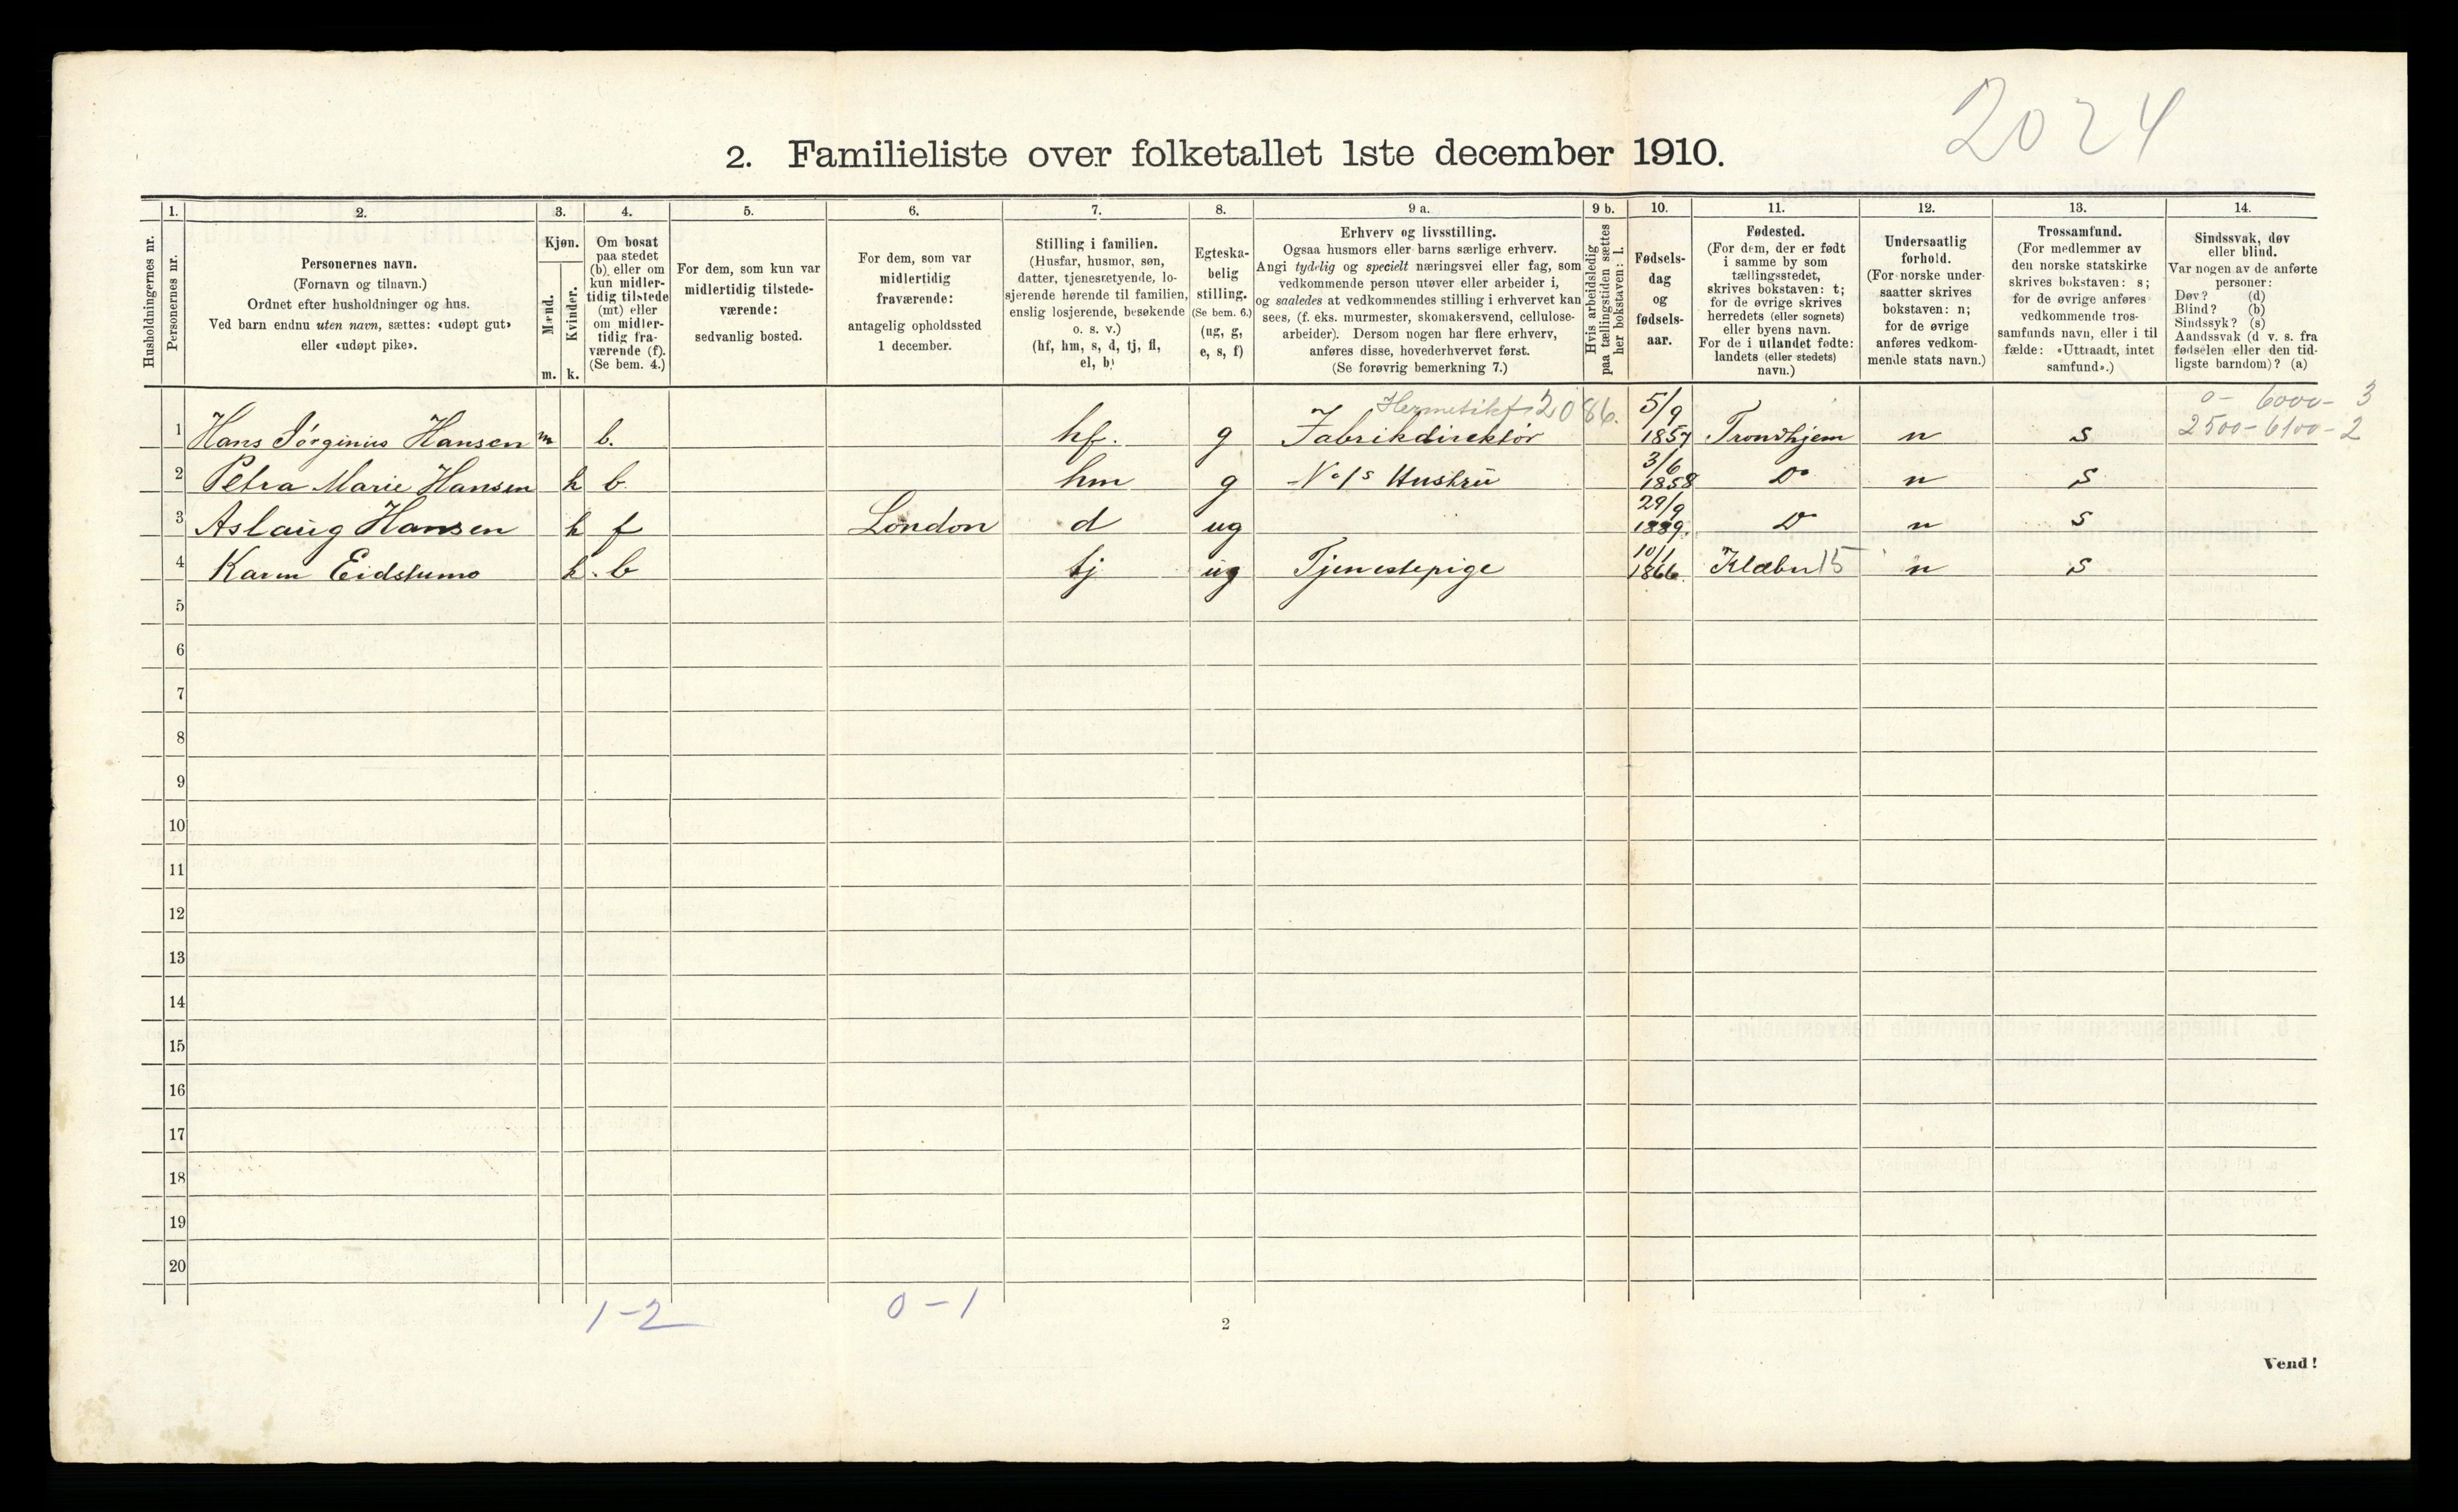 2024
2. Familieliste over folketallet 1ste december 1910.
Husholdningernes nr.
1.
Personernes nr.
2.
Personernes navn.
(Fornavn og tilnavn.)
Ordnet efter husholdninger og hus.
Ved barn endnu uten navn, sættes: «udøpt gut»
eller «udøpt pike».
3.
Kjøn.
Mænd.
m.
Kvinder.
k.
4.
Om bosat
paa stedet
(b) eller om
kun midler-
tidig tilstede
(mt) eller
om midler-
tidig fra-
værende (f).
(Se bem. 4.)
5.
For dem, som kun var
midlertidig tilstede-
værende:
sedvanlig bosted.
6.
For dem, som var
midlertidig
fraværende:
antagelig opholdssted
1 december.
7.
Stilling i familien.
(Husfar, husmor, søn,
datter, tjenestetyende, lo-
sjerende hørende til familien,
enslig losjerende, besøkende
o. s. v.)
(hf, hm, s, d, tj, fl,
el, b)
8.
Egteska-
belig
stilling.
(Se bem. 6.)
(ug, g,
e, s, f)
9 a.
Erhverv og livsstilling.
Ogsaa husmors eller barns særlige erhverv.
Angi tydelig og specielt næringsvei eller fag, som
vedkommende person utøver eller arbeider i,
og saaledes at vedkommendes stilling i erhvervet kan
sees, (f. eks. murmester, skomakersvend, cellulose-
arbeider). Dersom nogen har flere erhverv,
anføres disse, hovederhvervet først.
(Se forøvrig bemerkning 7.)
9 b.
Hvis arbeidsledig
paa tællingstiden sættes
her bokstaven: l.
10.
Fødsels-
dag
og
fødsels-
aar.
11.
Fødested.
(For dem, der er født
i samme by som
tællingsstedet,
skrives bokstaven: t;
for de øvrige skrives
herredets (eller sognets)
eller byens navn.
For de i utlandet fødte:
landets (eller stedets)
navn.)
12.
Undersaatlig
forhold.
(For norske under-
saatter skrives
bokstaven: n;
for de øvrige
anføres vedkom-
mende stats navn.)
13.
Trossamfund.
(For medlemmer av
den norske statskirke
skrives bokstaven: s;
for de øvrige anføres
vedkommende tros-
samfunds navn, eller i til
fælde: «Uttraadt, intet
samfund».)
14.
Sindssvak, døv
eller blind.
Var nogen av de anførte
personer:
Døv? (d)
Blind? (b)
Sindssyk? (s)
Aandssvak (d v. s. fra
fødselen eller den tid-
ligste barndom)? (a)
Hermetikf. 2086. 5/9 0- 6000- 3
1 Hans Jørginius Hansen m b. hf. g Fabrikdirektör 1857 Trondhjem n s 2500-6100-2
2 Petra Marie Hansen k b. hm g No 1s Hustru 3/6 1858 Do n s
3 Aslaug Hansen k f London d ug 29/9 1889. Do n s
4 Karin Eidstumo k. b tj ug Tjenestepige 10/1 1866. Klæbu 15 n s
5
6
7
8
9
10
11
12
13
14
15
16
17
18
19
20
1-2 0-1
2
Vend!